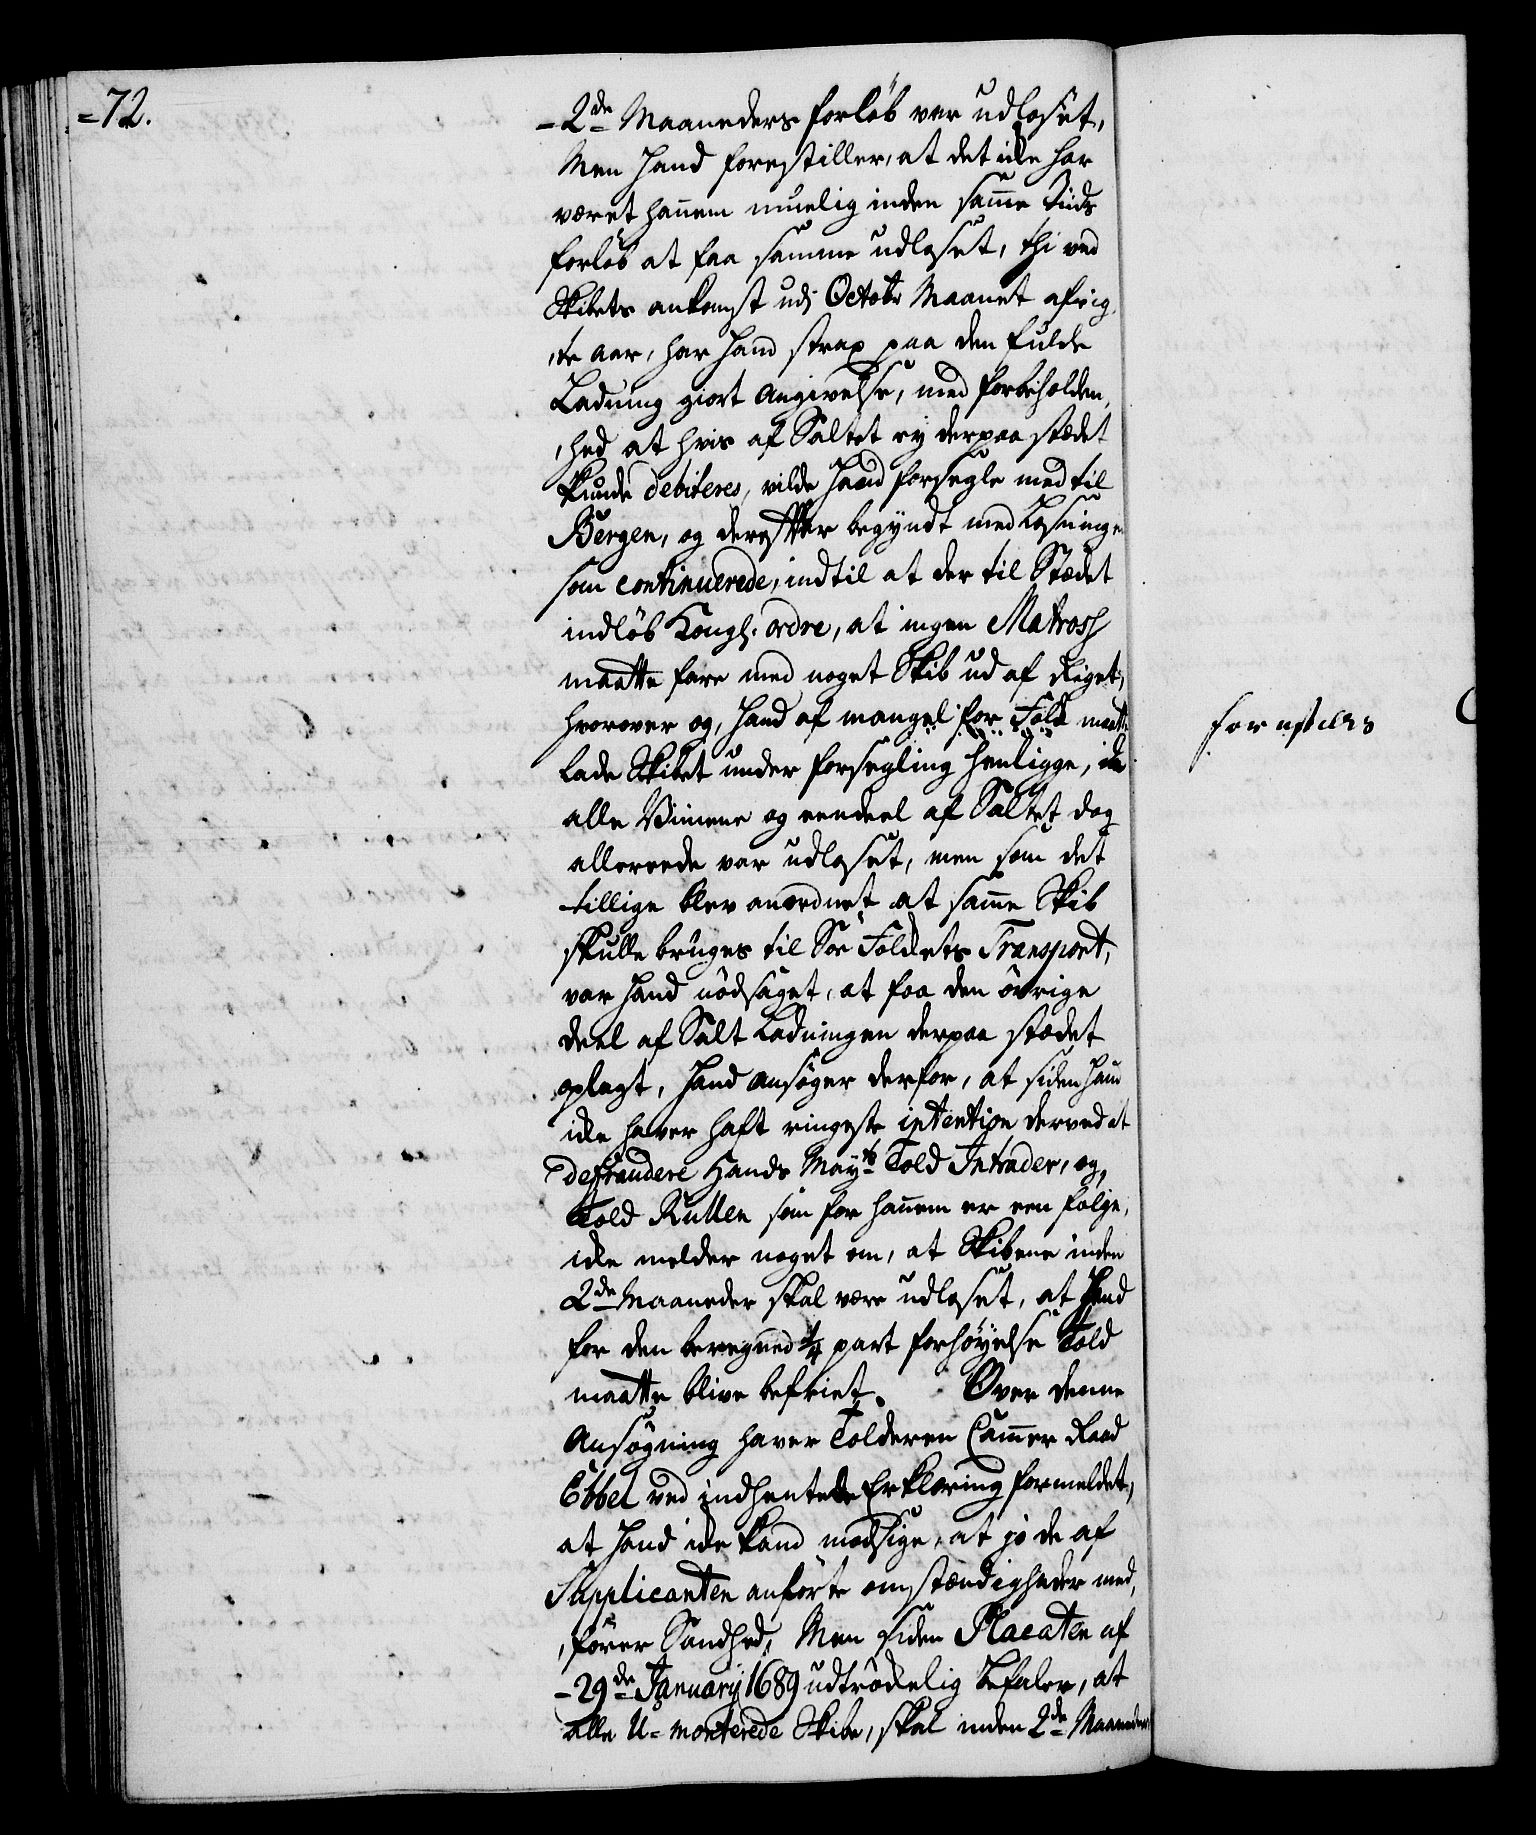 =72.
-2de Maaneders forløb var udloset,
Men hand forestiller, at det icke har
været hannem muelig inden samme Tiids
forløb at faa samme udloset, thi ved
Skibets ankomst udj Octobr Maanet afvig,
,te aar, har hand strax paa den fulde
Ladning giort Angivelse, med forbeholden,
,hed at hvis af Saltet ey derpaa stædet
kunde debiteres, vilde hand forsegle med til
Bergen, og derefter begyndt med Losningen
som continuerede, indtil at der til Stædet
indløb Kongl. ordre, at ingen Matross
maatte fare med noget Skib ud af Riget,
hvorover og, hand af mangel for Folk maatte
lade Skibet under forsegling henligge,
alle Viinene og eendeel af Saltet dog
allereede var udloset, men som det
tillige blev anordnet at samme Skib
skulle bruges til Søe Folckets Transport,
var hand nödsaget, at faa den övrige
deel af Salt Ladningen derpaa stædet
oplagt, hand ansøger derfor, at siden hand
icke haver haft ringeste intention derved at
defraudere Hands Mayts Told Intrader, og,
Told Rullen som for hannem er een følge,
icke melder noget om, at Skibene inden
2de Maaneder skal være udloset, at hand
for den beregned 1/4 part forhøyelse Told
maatte blive befriet. Over denne
Ansøgning haver Tolderen Cammer Raad
Ebbel ved indhentede Erklæring formeldet,
at hand icke kand modsige, at jo de af
Supplicanten anførte omstændigheder med,
,fører Sandhed, Men siden Placaten af
-29de January 1689 udtrödelig befaler, at
alle U=monterede Skibe, skal inden 2de Maaneder